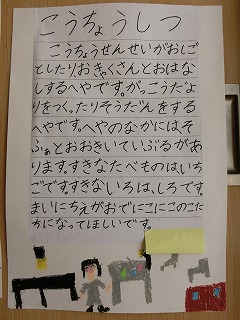 こうちょうしつ
こうちょうせんせいがおしご
としたりおきゃくさんとおはな
しするへやです。が。こうだよ
りをつく。たりそうだんをする
へやです。へやのなかにはそ
ふぁとおおきいていぶるがあ
ります。すきなたべものは、いち
ごです。すきないろは、しろです。
まいにちえがおでにこにこのこた
ちになってほしいです。